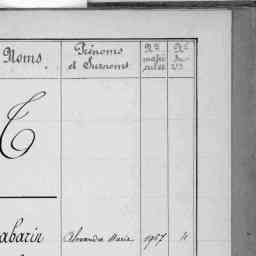 Noms. Prénoms et Surnoms Nos matri cules Nos du
T
abarin Alexandre Marie 1967 11